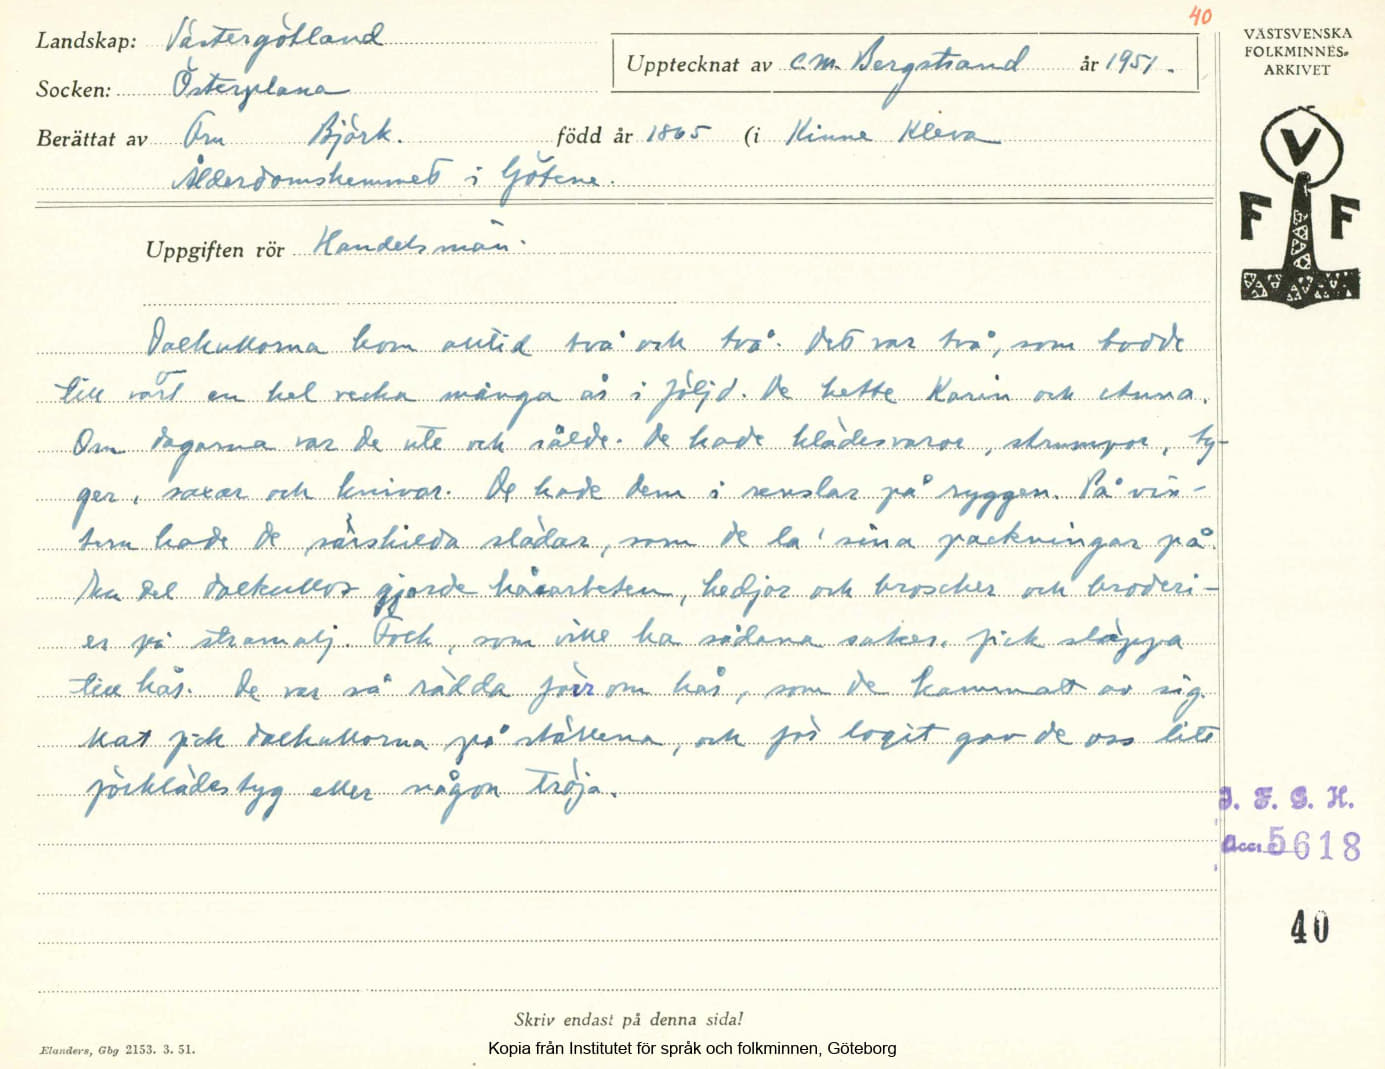 40
Landskap: Västergötland
Upptecknat av C.M. Bergstrand år 1951.
Socken: Österplana
Berättat av Fru Björk. född år 1865 (i Kinne Kleva
Ålderdomshemmet i Götene.
VÄSTSVENSKA
FOLKMINNES-
ARKIVET
V
F F
Uppgiften rör Handelsmän.
Dalkullorna kom alltid två och två. Det var två, som bodde
till vårt en hel vecka många år i följd. De hette Karin och Anna.
Om dagarna var de ute och sålde. De hade klädesvaror, strumpor, ty-
ger, saxar och knivar. De hade dem i renslar på ryggen. På vin-
tern hade de särskilda slädar, som de la' sina packningar på.
En del dalkullor gjorde hårarbeten, kedjor och broscher och broderi-
er på stramalj. Folk, som ville ha sådana saker, fick släppa
till hår. De var så rädda förr om hår, som de kammat av sig.
Mat fick dalkullorna på ställena, och för logit gav de oss lite
förklädestyg eller någon tröja.
I. F. G. H.
Acc. 5618
40
Skriv endast på denna sida!
Elanders, Gbg 2153. 3. 51.
Kopia från Institutet för språk och folkminnen, Göteborg